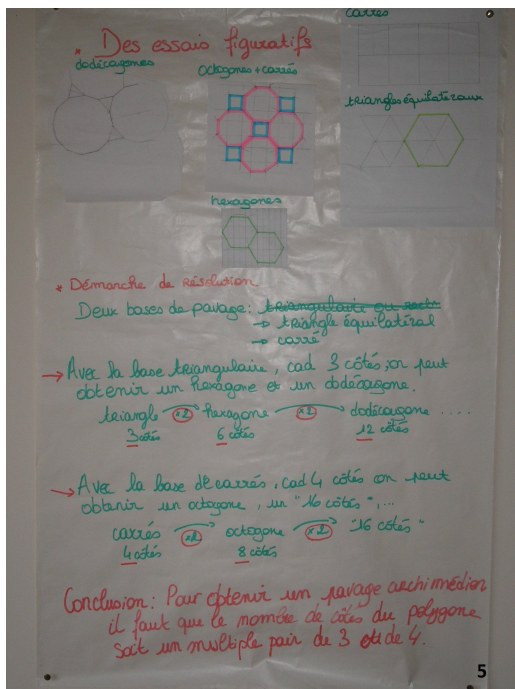 * Des essais figuratifs
carrés
dodécagones
octogones + carrés
triangles équilatéraux
hexagones
* Démarche de résolution
Deux bases de pavage : triangulaire ou rectn
→ triangle équilatéral
→ carré
→ Avec la base triangulaire, cad 3 côtés, on peut
obtenir un hexagone et un dodécagone.
triangle ×2 hexagone ×2 dodécagone ....
3 côtés 6 côtés 12 côtés
→ Avec la base de carrés, cad 4 côtés on peut
obtenir un octogone, un "16 côtés",...
carrés ×2 octogone ×2 "16 côtés"
4 côtés 8 côtés
Conclusion : Pour obtenir un pavage archimédien
il faut que le nombre de côtés du polygone
soit un multiple pair de 3 et de 4.
5